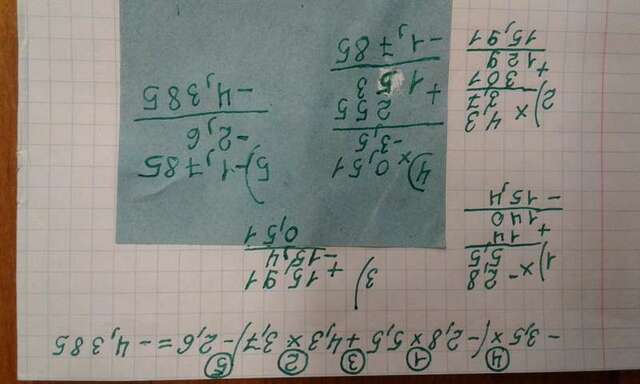 ④ ① ③ ② ⑤
-3,5×(-2,8×5,5+4,3×3,7)-2,6=-4,385
1) × -2,8
5,5
14
+
140
-15,4
2) × 4,3
3,7
301
+
129
15,91
3) + 15,91
-15,4
0,51
4) × 0,51
-3,5
255
+ 153
-1,785
5) -1,785
-2,6
-4,385